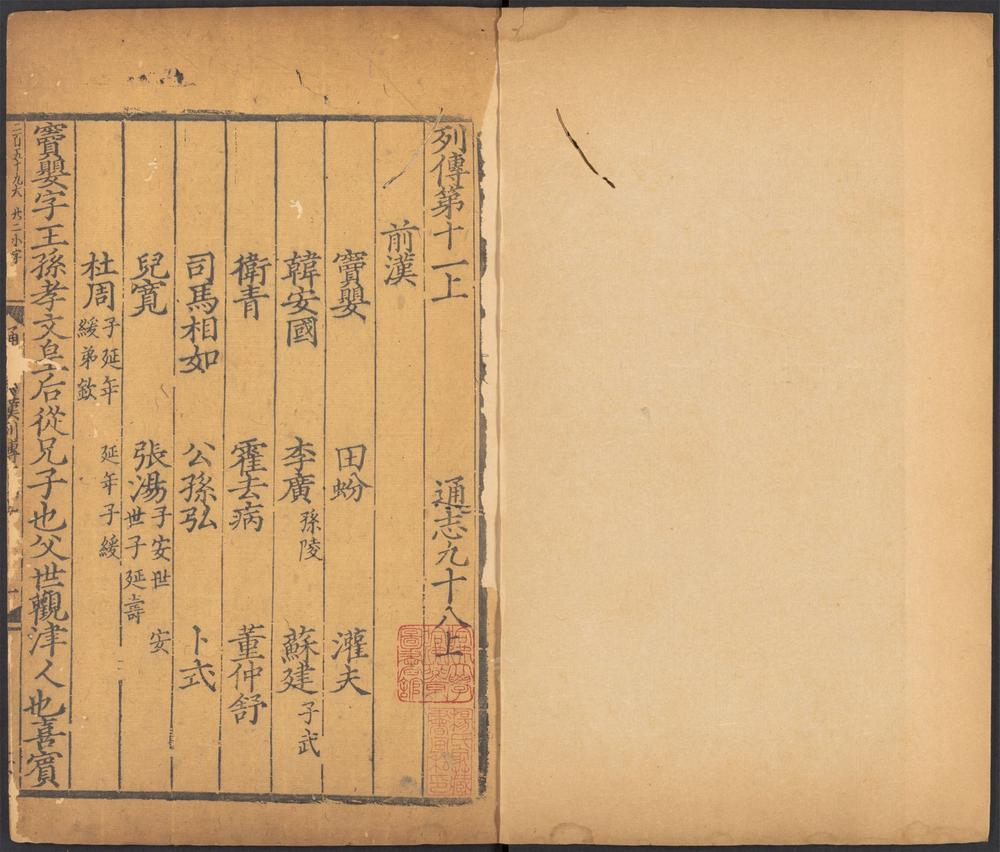 列傳第十一上　通志九十八上
前漢
竇嬰　田蚡　灌夫
韓安國　李廣　孫陵　蘇建　子武
衛青　霍去病　董仲舒
司馬相如　公孫弘　卜式
兒寬　張湯　子安世　安
世子延壽
杜周　子延年　延年子緩
緩弟欽
竇嬰字王孫孝文皇后從兄子也父世觀津人也喜賓
二百五十九大　廿二小字
通
漢列傳